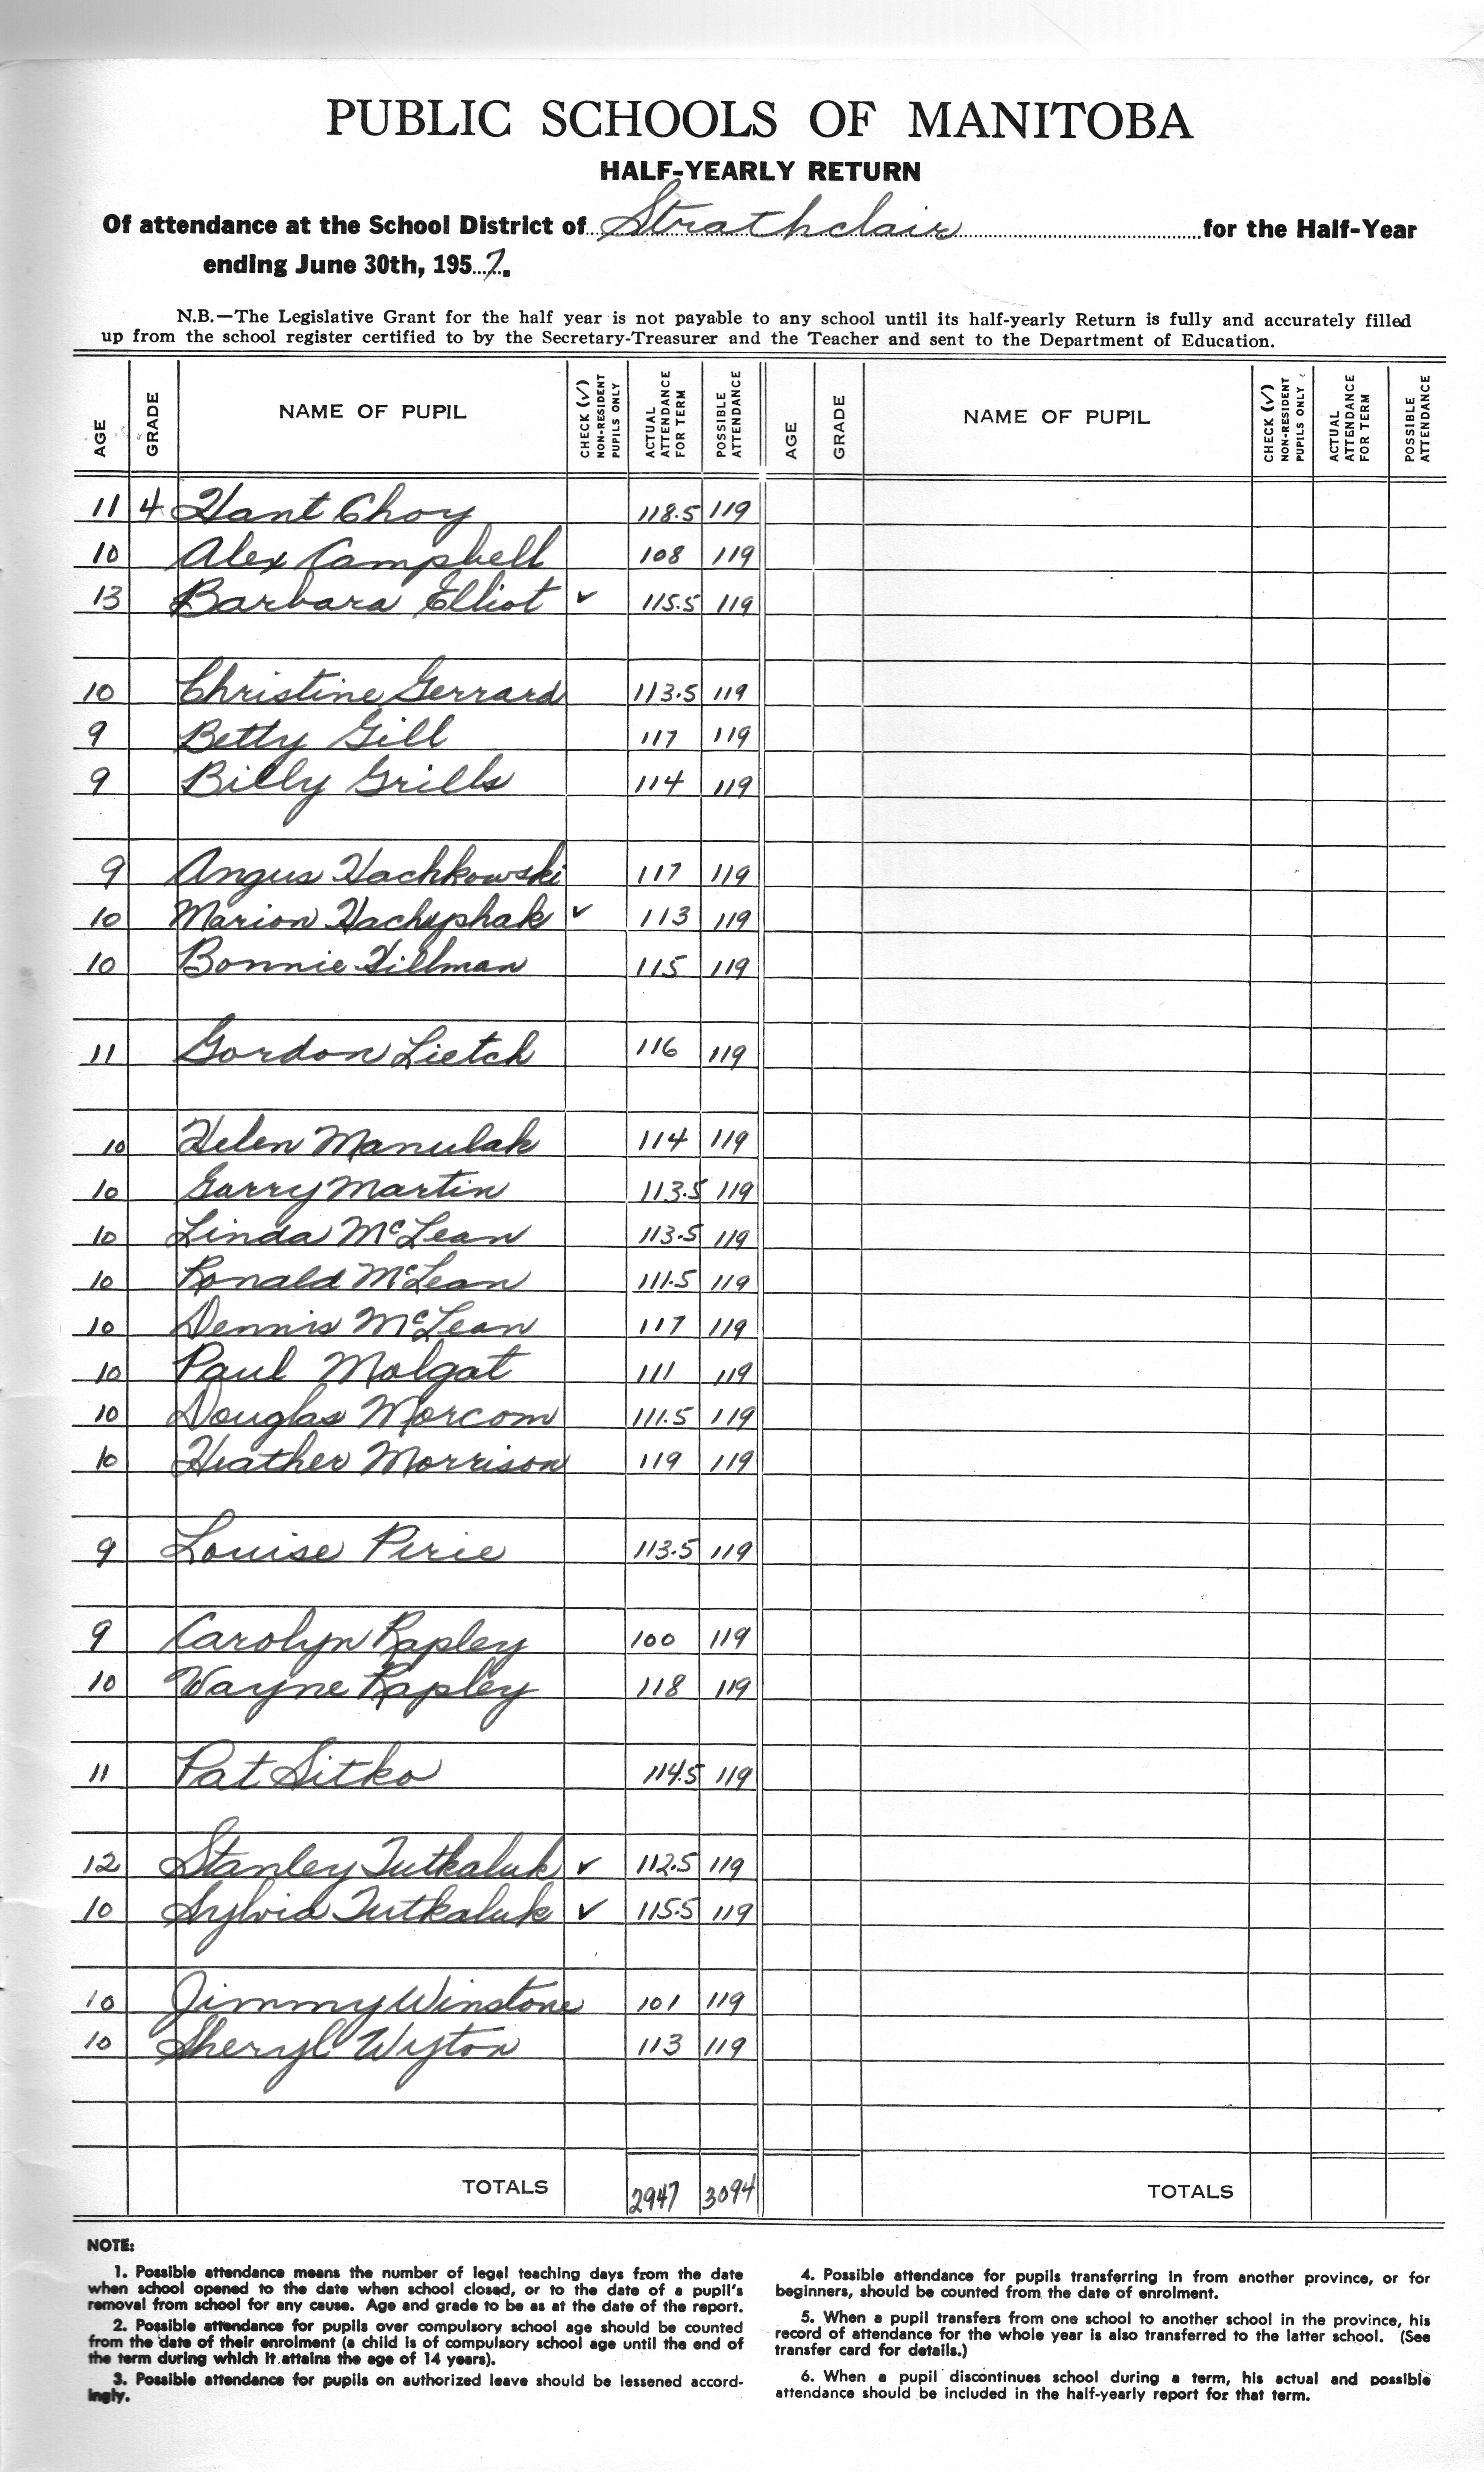 PUBLIC SCHOOLS OF MANITOBA
HALF-YEARLY RETURN
Of attendance at the School District of Strathclair for the Half-Year
ending June 30th, 1957.
N.B.—The Legislative Grant for the half year is not payable to any school until its half-yearly Return is fully and accurately filled
up from the school register certified to by the Secretary-Treasurer and the Teacher and sent to the Department of Education.
AGE GRADE NAME OF PUPIL CHECK (✓) NON-RESIDENT PUPILS ONLY ACTUAL ATTENDANCE FOR TERM POSSIBLE ATTENDANCE AGE GRADE NAME OF PUPIL CHECK (✓) NON-RESIDENT PUPILS ONLY ACTUAL ATTENDANCE FOR TERM POSSIBLE ATTENDANCE
11 4 Hant Choy 118.5 119
10 Alex Campbell 108 119
13 Barbara Elliot ✓ 115.5 119
10 Christine Gerrard 113.5 119
9 Betty Gill 117 119
9 Billy Grills 114 119
9 Angus Hachkowski 117 119
10 Marion Hachyphak ✓ 113 119
10 Bonnie Hillman 115 119
11 Gordon Lietch 116 119
10 Helen Manulak 114 119
10 Garry Martin 113.5 119
10 Linda McLean 113.5 119
10 Ronald McLean 111.5 119
10 Dennis McLean 117 119
10 Paul Molgat 111 119
10 Douglas Morcom 111.5 119
10 Heather Morrison 119 119
9 Louise Pirie 113.5 119
9 Carolyn Rapley 100 119
10 Wayne Rapley 118 119
11 Pat Sitko 114.5 119
12 Stanley Tutkaluk ✓ 112.5 119
10 Sylvia Tutkaluk ✓ 115.5 119
10 Jimmy Winstone 101 119
10 Sheryl Wyton 113 119
TOTALS 2947 3094 TOTALS
NOTE:
1. Possible attendance means the number of legal teaching days from the date
when school opened to the date when school closed, or to the date of a pupil's
removal from school for any cause. Age and grade to be as at the date of the report.
2. Possible attendance for pupils over compulsory school age should be counted
from the date of their enrolment (a child is of compulsory school age until the end of
the term during which it attains the age of 14 years).
3. Possible attendance for pupils on authorized leave should be lessened accord-
ingly.
4. Possible attendance for pupils transferring in from another province, or for
beginners, should be counted from the date of enrolment.
5. When a pupil transfers from one school to another school in the province, his
record of attendance for the whole year is also transferred to the latter school. (See
transfer card for details.)
6. When a pupil discontinues school during a term, his actual and possible
attendance should be included in the half-yearly report for that term.